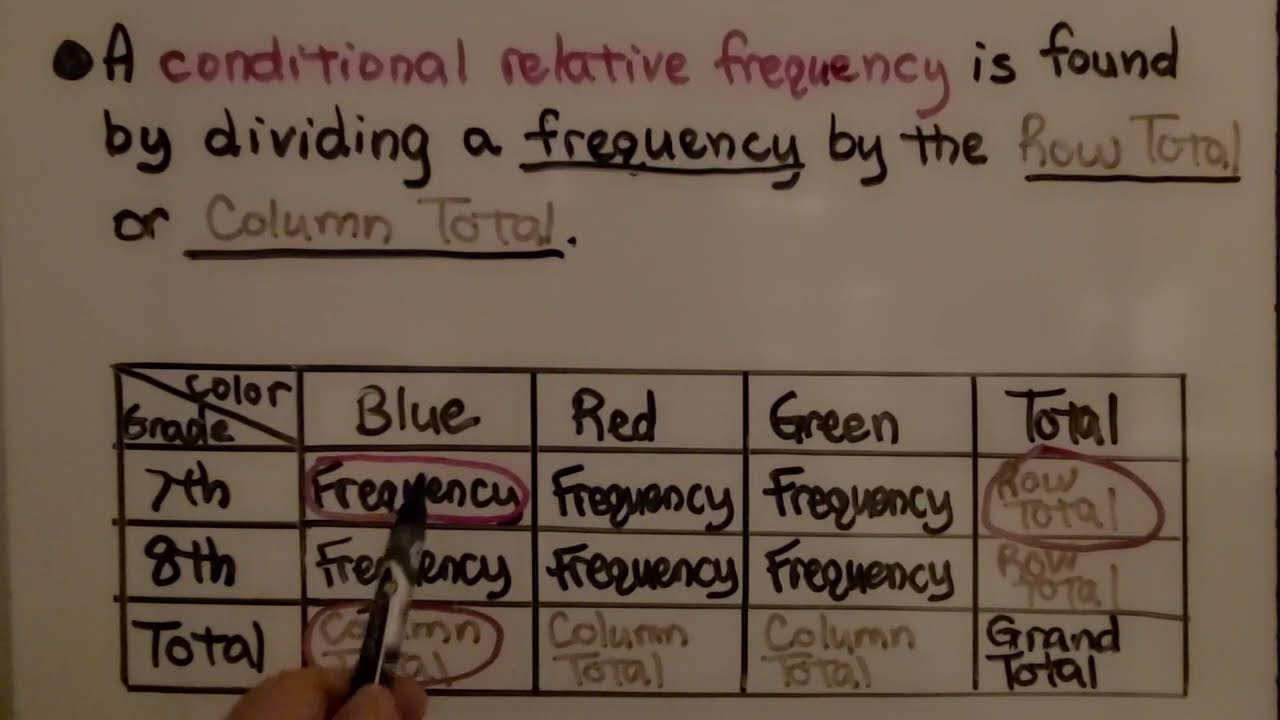 ● A conditional relative frequency is found
by dividing a frequency by the Row Total
or Column Total.
Color
Grade
Blue
Red
Green
Total
7th
Frequency
Frequency
Frequency
Row
Total
8th
Frequency
Frequency
Frequency
Row
Total
Total
Column
Total
Column
Total
Column
Total
Grand
Total